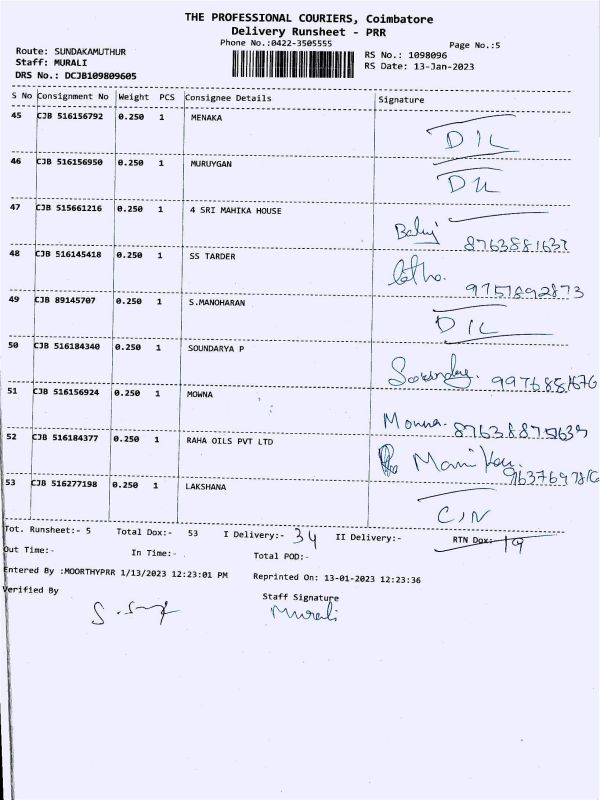 THE PROFESSIONAL COURIERS, Coimbatore
Delivery Runsheet - PRR
Phone No.:0422-3505555
Page No.:5
Route: SUNDAKAMUTHUR
Staff: MURALI
DRS No.: DCJB109809605
RS No.: 1098096
RS Date: 13-Jan-2023
S No Consignment No Weight PCS Consignee Details Signature
45 CJB 516156792 0.250 1 MENAKA D/L
46 CJB 516156950 0.250 1 MURUYGAN D/L
47 CJB 515661216 0.250 1 4 SRI MAHIKA HOUSE
8763881637
48 CJB 516145418 0.250 1 SS TARDER
9757892873
49 CJB 89145707 0.250 1 S.MANOHARAN D/L
50 CJB 516184340 0.250 1 SOUNDARYA P
51 CJB 516156924 0.250 1 MOWNA
Mowna.
52 CJB 516184377 0.250 1 RAHA OILS PVT LTD
53 CJB 516277198 0.250 1 LAKSHANA C/N
Tot. Runsheet:- 5 Total Dox:- 53 I Delivery:- 34 II Delivery:- RTN Dox: 19
Out Time:- In Time:- Total POD:-
Entered By :MOORTHYPRR 1/13/2023 12:23:01 PM Reprinted On: 13-01-2023 12:23:36
Verified By Staff Signature
Murali